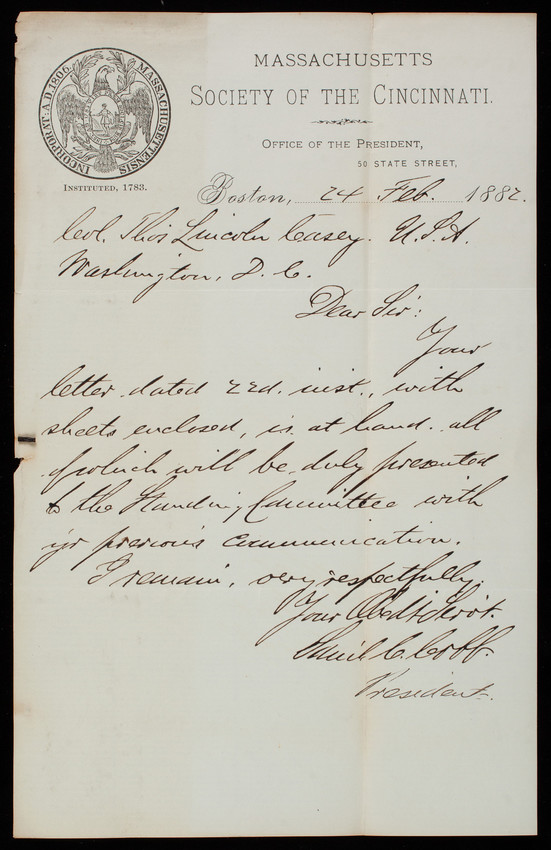 INCORPORAT: A.D. 1806. MASSACHUSETTENSIS
INSTITUTED, 1783.
MASSACHUSETTS
SOCIETY OF THE CINCINNATI.
OFFICE OF THE PRESIDENT,
50 STATE STREET,
Boston, 24 Feb. 1882.
Col. Thos Lincoln Casey. U.S.A.
Washington, D.C.
Dear Sir:
Your
letter dated 22d. inst., with
sheets enclosed, is at hand. all
of which will be duly presented
to the Standing Committee with
yr previous communication.
I remain, very respectfully,
Your Obdt Servt.
Saml. C. Cobb.
President.